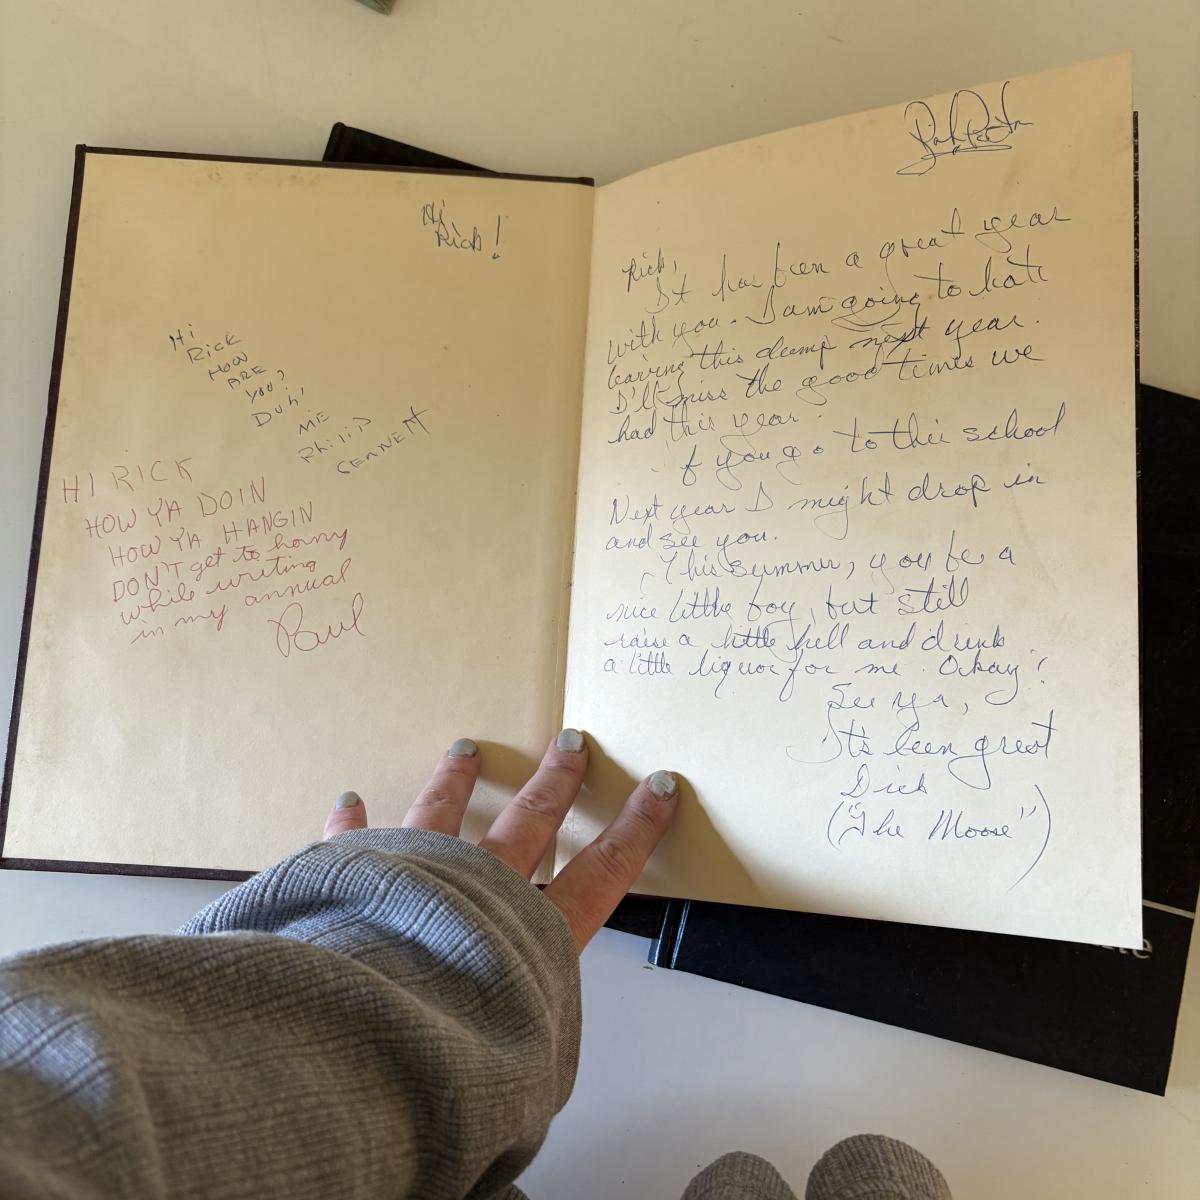 Hi
Rick!
Hi
Rick
How
ARE
you?
Duh!
ME
PhiliP
SENNETT
HI RICK
HOW YA DOIN
HOW YA HANGIN
DON'T get to horny
while writing
in my annual
Paul
Rick,
It has been a great year
with you. I am going to hate
leaving this dump next year.
I'll miss the good times we
had this year.
If you go to this school
Next year I might drop in
and see you.
This summer, you be a
nice little boy, but still
raise a little hell and drink
a little liquor for me. Okay?
See ya,
It's been great
Dick
("The Moose")